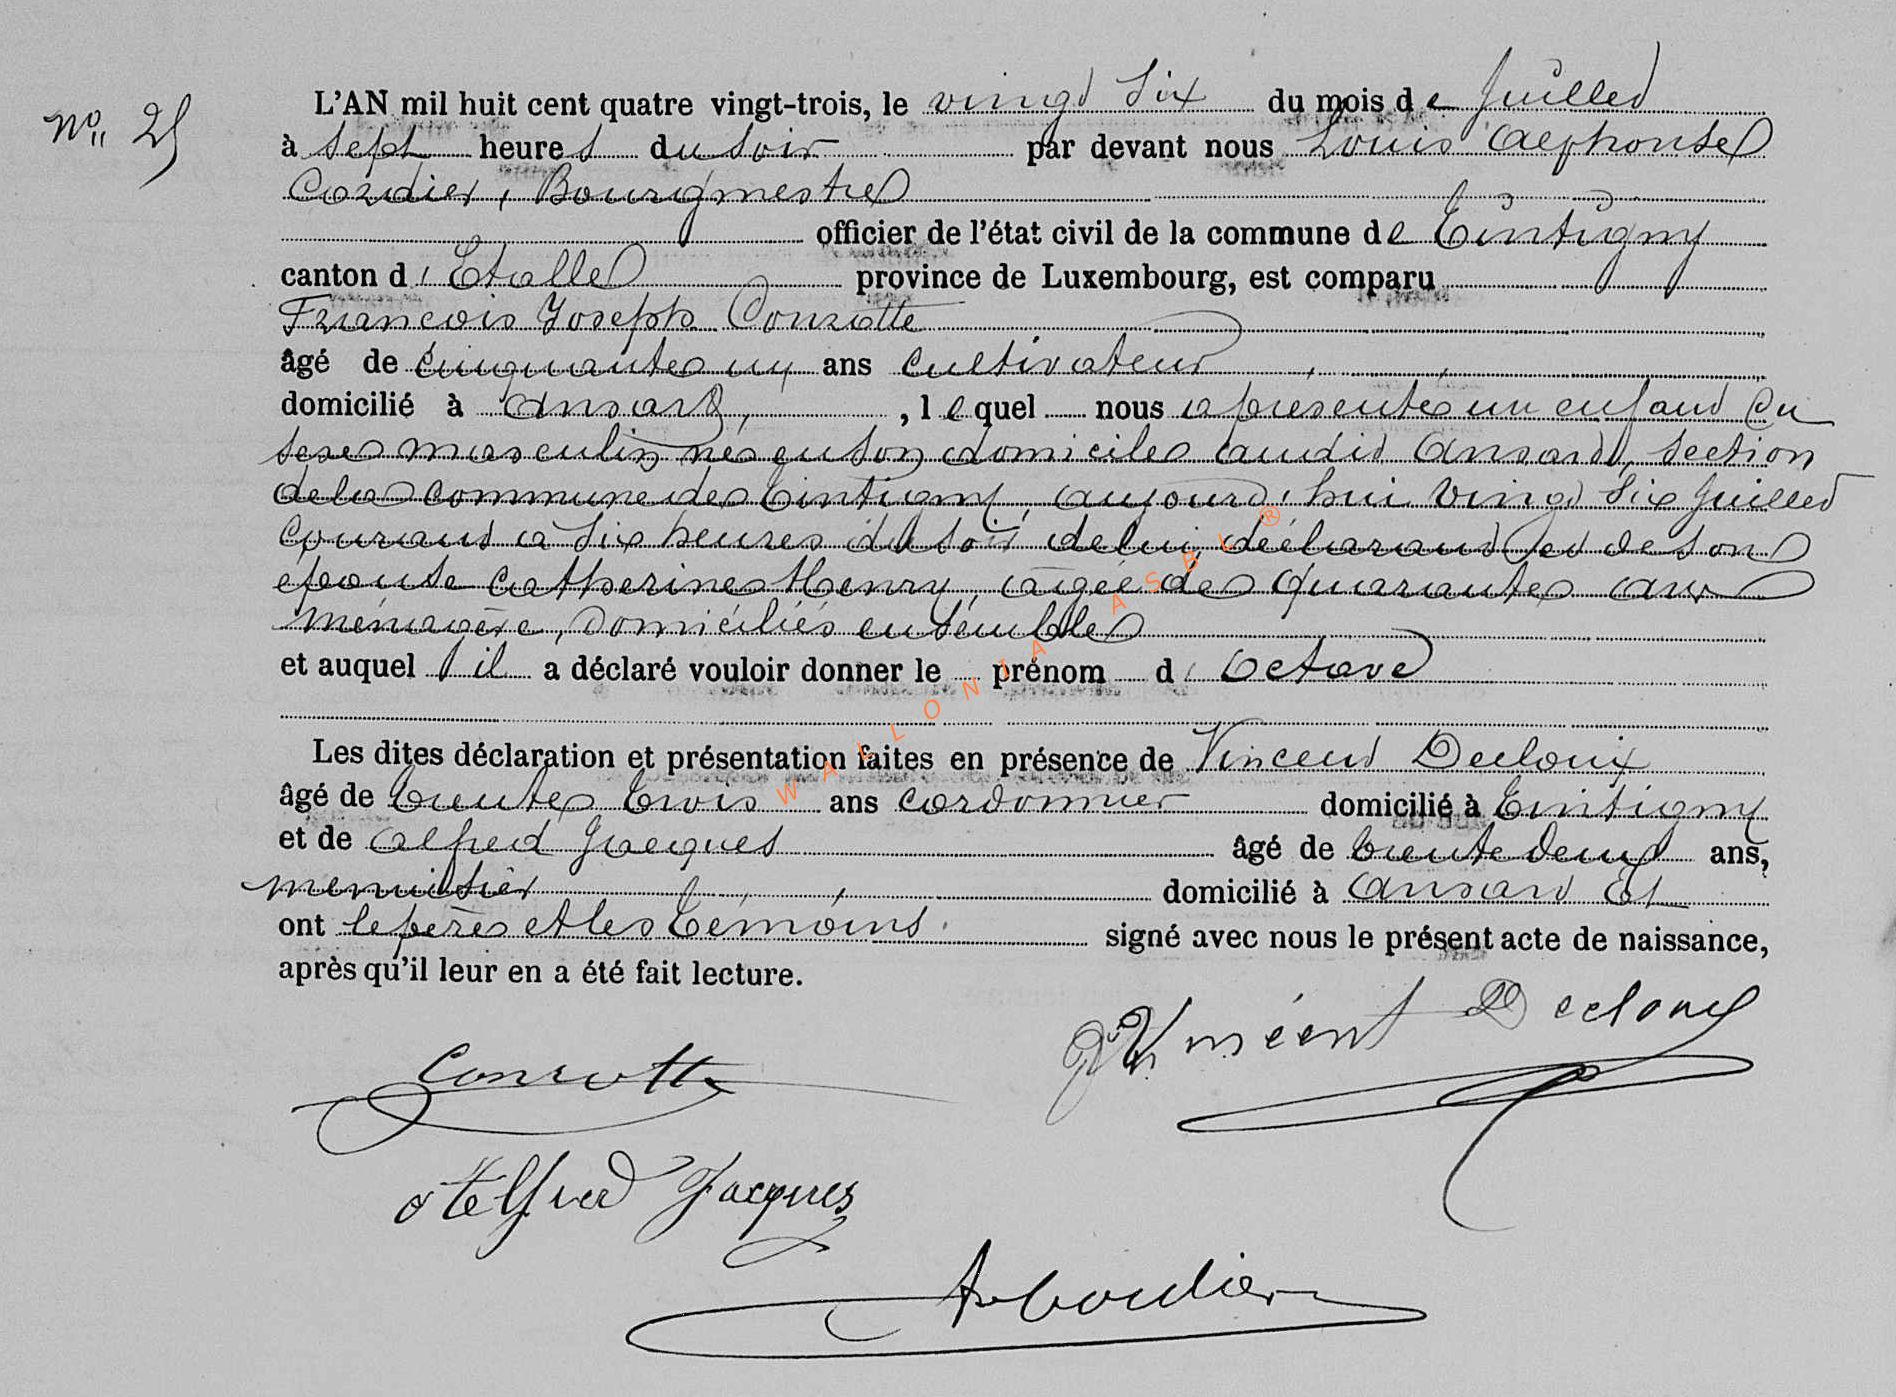 N° 25
L'AN mil huit cent quatre vingt-trois, le vingt six du mois de Juillet
à sept heures du soir par devant nous Louis Alphonse
Cordier, Bourgmestre
officier de l'état civil de la commune de Tintigny
canton d'Etalle province de Luxembourg, est comparu
François Joseph Conrotte
âgé de cinquante un ans cultivateur
domicilié à Ansart, , lequel nous a présenté un enfant du
sexe masculin né en son domicile audit Ansart, section
de la commune de Tintigny, aujourd'hui vingt six Juillet
courant à six heures du soir de lui déclarant et de son
épouse Catherine Henry, âgée de quarante ans
ménagère, domiciliés ensemble
et auquel il a déclaré vouloir donner le prénom d'Octave
Les dites déclaration et présentation faites en présence de Vincent Decloux
âgé de trente trois ans cordonnier domicilié à Tintigny
et de Alfred Jacques âgé de trente deux ans,
menuisier domicilié à Ansart Et
ont le père et les témoins signé avec nous le présent acte de naissance,
après qu'il leur en a été fait lecture.
Vincent Decloux
Conrotte
Alfred Jacques
A Cordier
WALLONIA ASBL ®